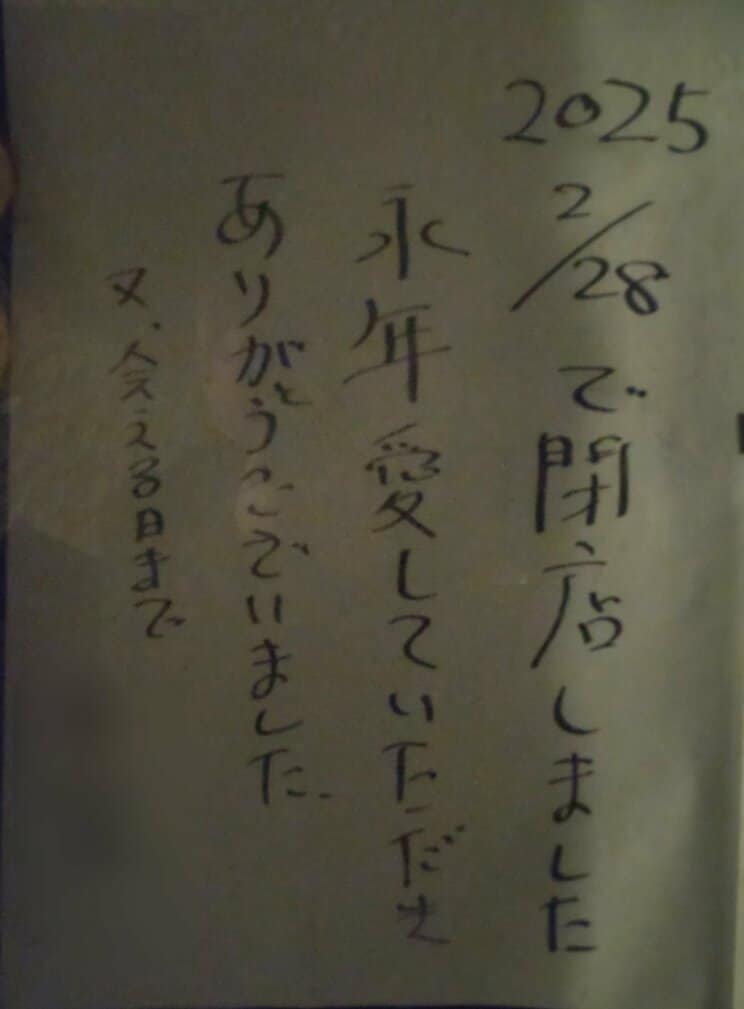 2025
2/28で閉店しました
永年愛していただき
ありがとうございました.
又、会える日まで